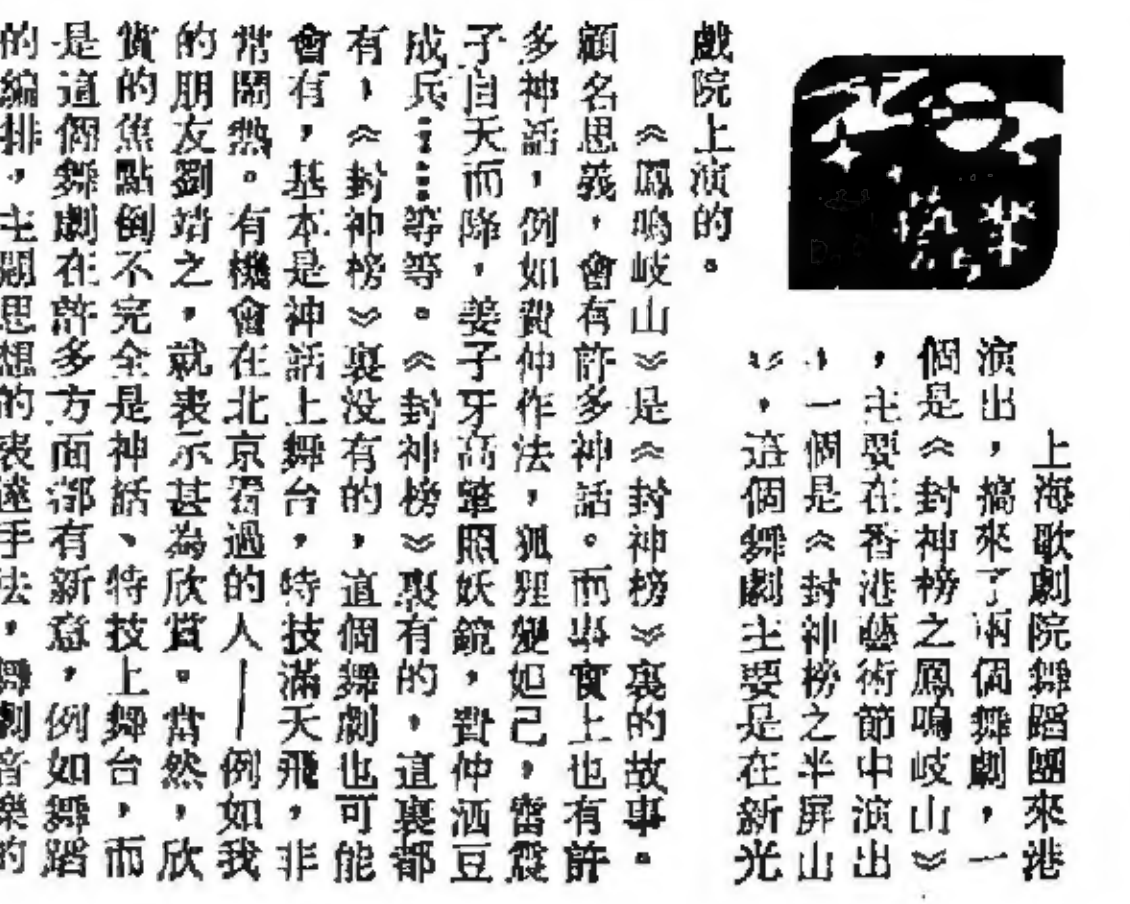 上海歌劇院舞蹈團來港
演出，搞來了兩個舞劇，一
個是《封神榜之鳳鳴岐山》
，主要在香港藝術節中演出
，一個是《封神榜之半屏山
》，這個舞劇主要是在新光
戲院上演的。
《鳳鳴岐山》是《封神榜》裏的故事。
顧名思義，會有許多神話。而事實上也有許
多神話，例如費仲作法，狐狸變妲己，雷震
子自天而降，姜子牙高擎照妖鏡，費仲洒豆
成兵……等等。《封神榜》裏有的，這裏都
有，《封神榜》裏没有的，這個舞劇也可能
會有，基本是神話上舞台，特技滿天飛，非
常鬧熱。有機會在北京看過的人—例如我
的朋友劉靖之，就表示甚為欣賞。當然，欣
賞的焦點倒不完全是神話、特技上舞台，而
是這個舞劇在許多方面都有新意，例如舞蹈
的編排，主題思想的表達手法，舞劇音樂的